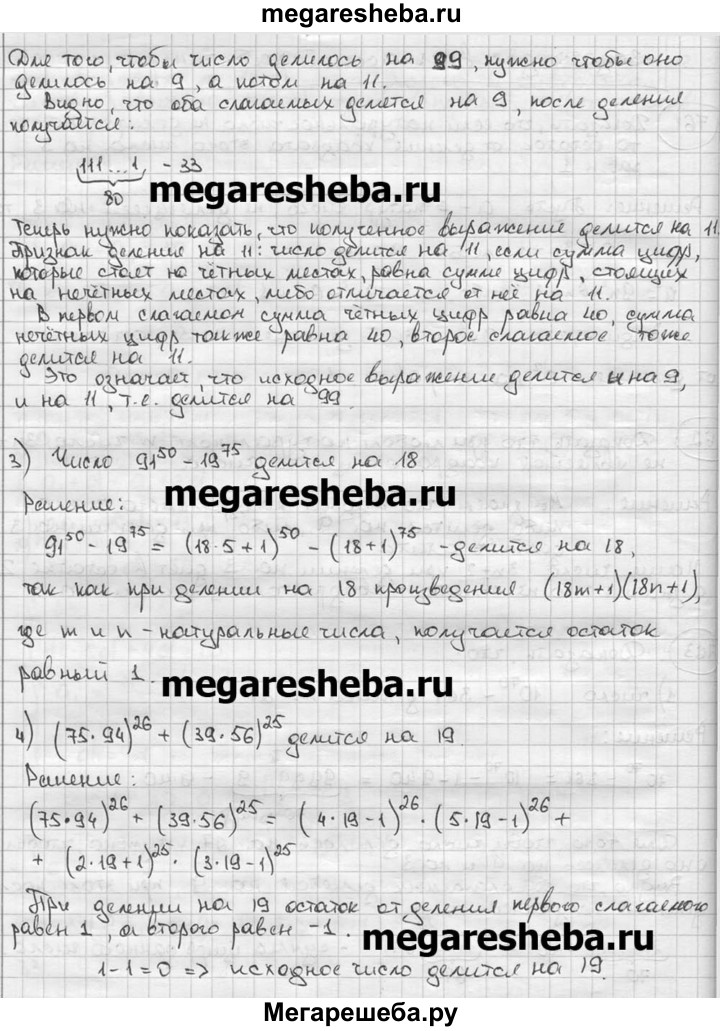 megaresheba.ru
Для того, чтобы число делилось на 99, нужно чтобы оно
делилось на 9, а потом на 11.
Видно, что оба слагаемых делятся на 9, после деления
получается:
111...1 - 33
80
megaresheba.ru
Теперь нужно показать, что полученное выражение делится на 11.
Признак деления на 11: число делится на 11, если сумма цифр,
которые стоят на чётных местах, равна сумме цифр, стоящих
на нечётных местах, либо отличается от неё на 11.
В первом слагаемом сумма чётных цифр равна 40, сумма
нечётных цифр также равна 40, второе слагаемое тоже
делится на 11.
Это означает, что исходное выражение делится и на 9,
и на 11, т.е. делится на 99.
3) Число 91^50 - 19^75 делится на 18
Решение:
megaresheba.ru
91^50 - 19^75 = (18·5+1)^50 - (18+1)^75 - делится на 18,
так как при делении на 18 произведения (18m+1)(18n+1),
где m и n - натуральные числа, получается остаток
равный 1.
megaresheba.ru
4) (75·94)^26 + (39·56)^25 делится на 19.
Решение:
(75·94)^26 + (39·56)^25 = (4·19-1)^26 · (5·19-1)^26 +
+ (2·19+1)^25 · (3·19-1)^25
При делении на 19 остаток от деления первого слагаемого
равен 1, а второго равен -1.
megaresheba.ru
1-1=0 => исходное число делится на 19.
Мегарешеба.ру